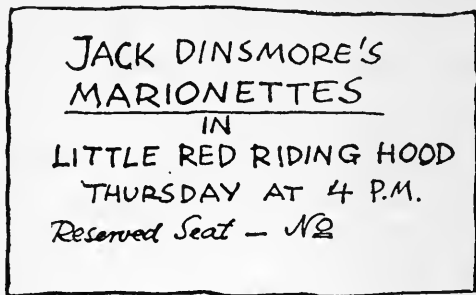 JACK DINSMORE'S
MARIONETTES
IN
LITTLE RED RIDING HOOD
THURSDAY AT 4 P.M.
Reserved Seat – No